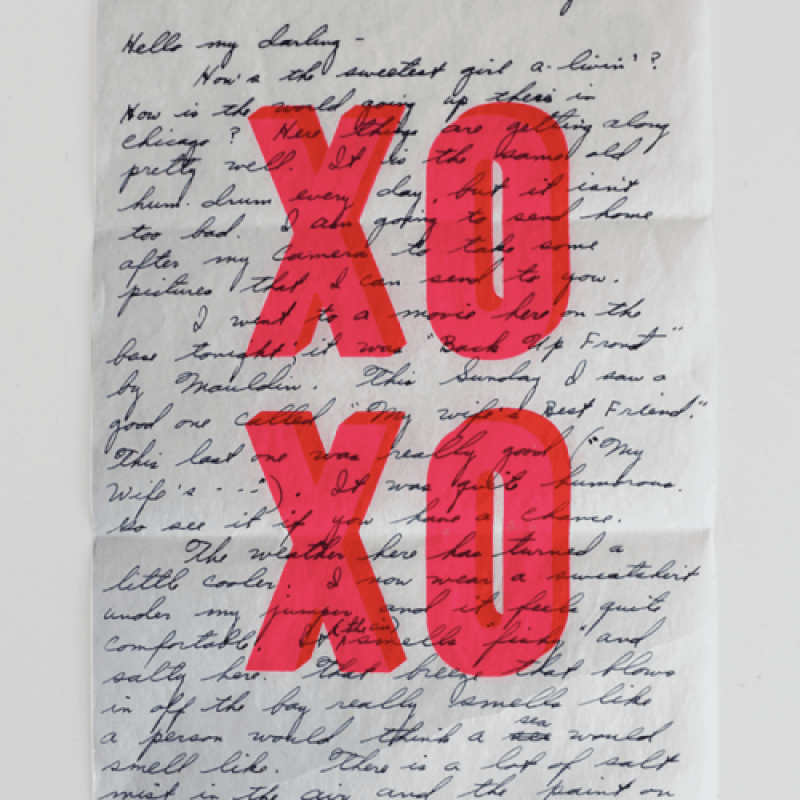 Hello my darling -
How's the sweetest girl a-livin'?
How is the world going up there in
Chicago? Here things are getting along
pretty well. It is the same old
hum-drum every day, but it isn't
too bad. I am going to send home
after my camera to take some
pictures that I can send to you.
I went to a movie here on the
base tonight, it was "Back Up Front"
by Mauldin. This Sunday I saw a
good one called "My wife's Best Friend."
This last one was really good ("My
Wife's ---"). It was quite humorous.
So see it if you have a chance.
The weather here has turned a
little cooler. I now wear a sweatshirt
under my jumper and it feels quite
comfortable. It (the air) smells "fishy" and
salty here. That breeze that blows
in off the bay really smells like
a person would think a sea would
smell like. There is a lot of salt
mist in the air and the paint on
XO
XO